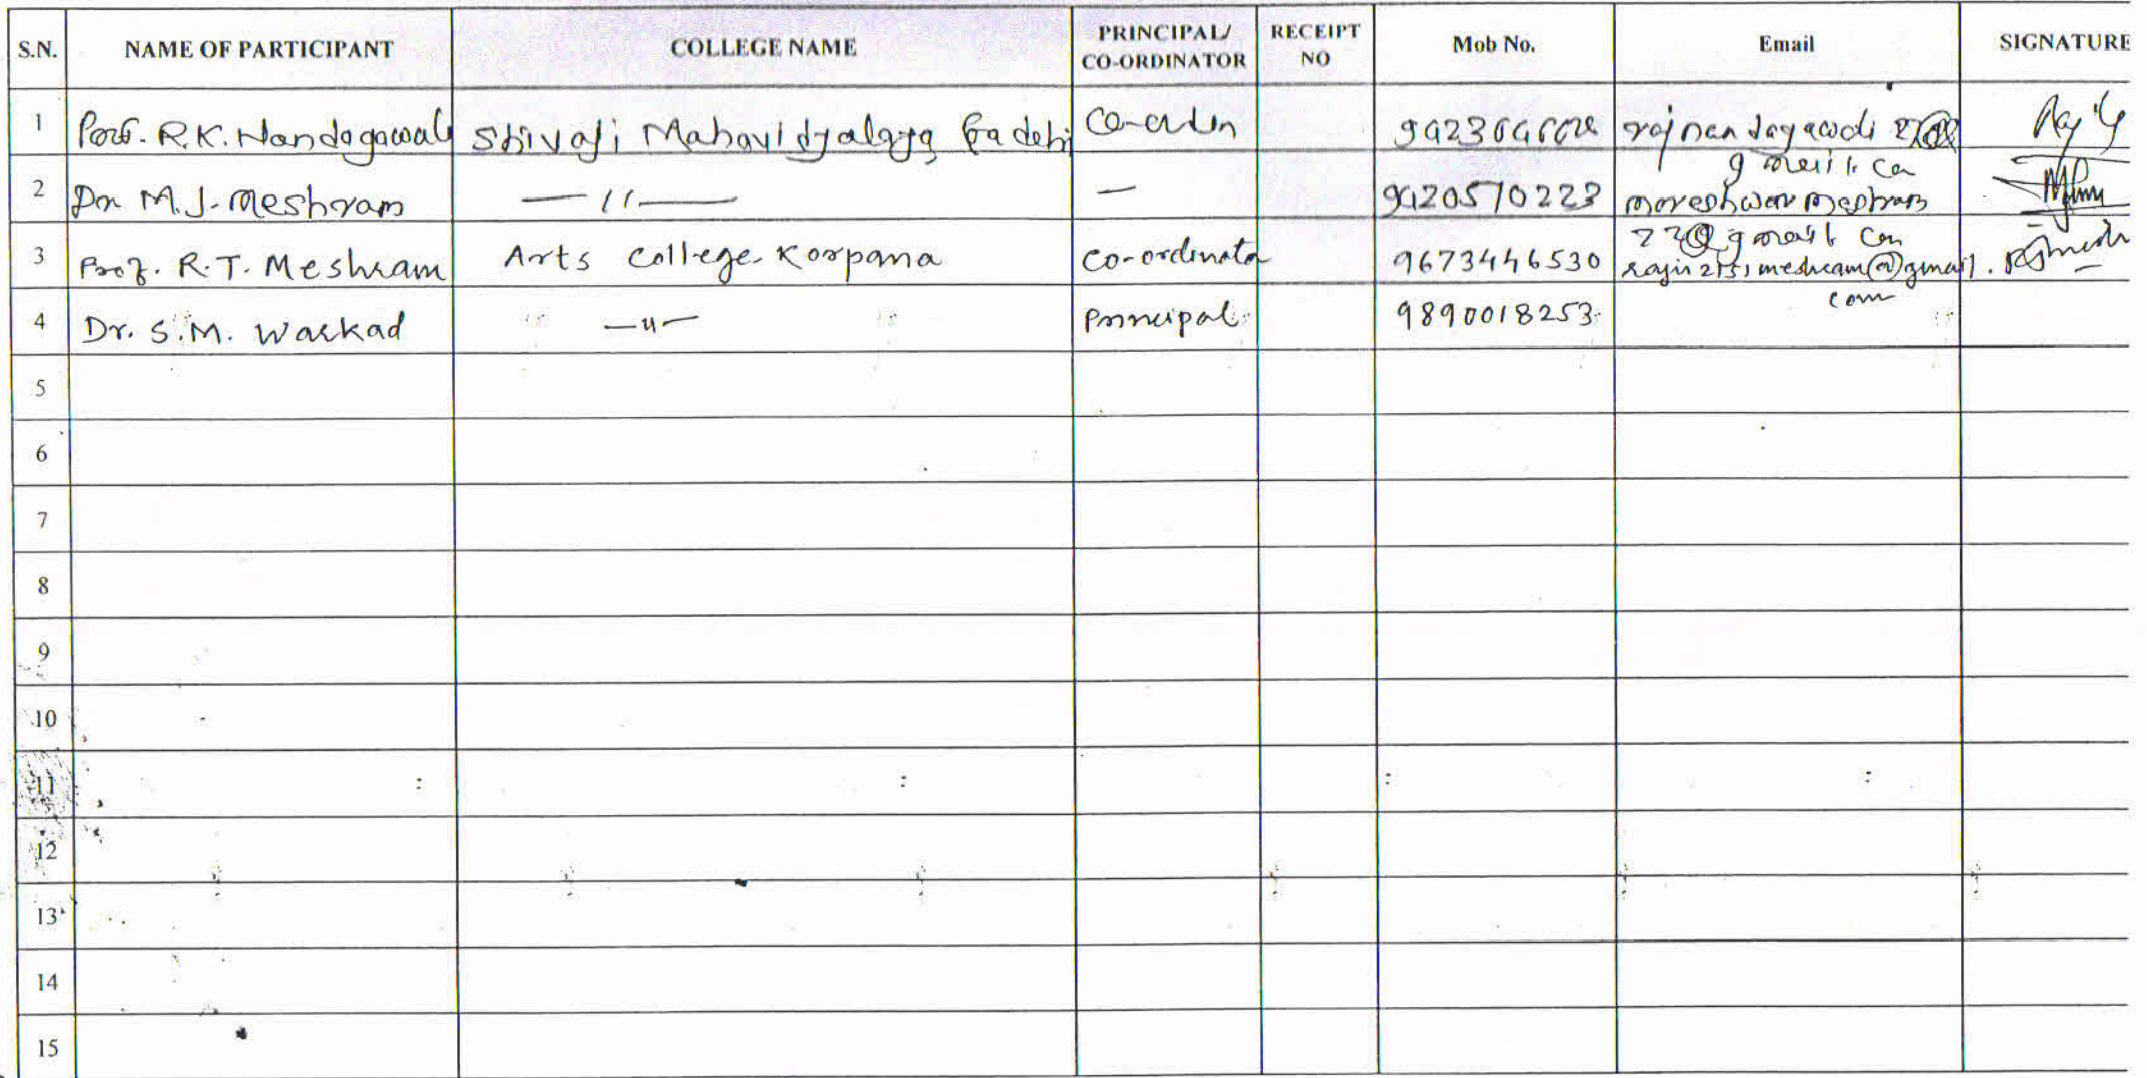 S.N. NAME OF PARTICIPANT COLLEGE NAME PRINCIPAL/ CO-ORDINATOR RECEIPT NO Mob No. Email SIGNATURE
1 Prof. R.K. Nandagawali Shivaji Mahavidyalaya
g mail. co
2 Dr M.J. Meshram —11— — 9420570223 moreshwar meshram
22@gmail. com
3 Prof. R.T. Meshram Arts College Korpana Co-ordinato 9673446530 meshram@gmail.
com
4 Dr. S.M. Warkad —11— Principal 9890018253
5
6
7
8
9
10
11
12
13
14
15